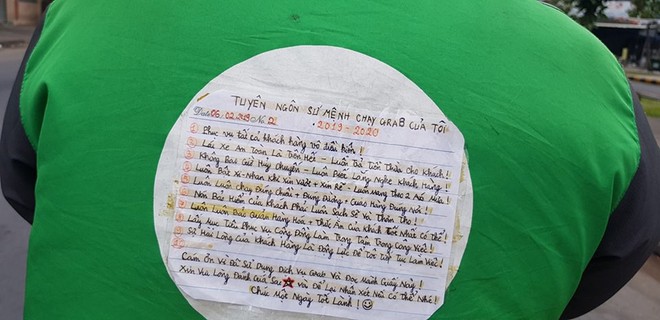 TUYÊN NGÔN SỨ MỆNH CHẠY GRAB CỦA TÔI
Date 06/02/2019 No 2
2019 - 2020
1 Phục vụ tất cả khách hàng vô điều kiện!
2 Lái Xe An Toàn Là Trên Hết - Luôn Đã Tốt Thiểu Cho Khách!
3 Không Bao Giờ Hủy Chuyến - Luôn Biết Lắng Nghe Khách Hàng!
4 Luôn Bật Xi-Nhan Khi Xin Vượt + Xin Rẽ - Luôn Mang Theo 2 Áo Mưa!
5 Luôn Luôn Chạy Đúng Chuẩn + Đúng Đường + Giao Hàng Đúng Nơi!
6 Nón Bảo Hiểm Của Khách Phải Luôn Sạch Sẽ Và Thơm Tho!
7 Luôn Luôn Bảo Quản Hàng Hóa + Thức Ăn Của Khách Tốt Nhất Có Thể!
8 Lấy Mục Tiêu Phục Vụ Cộng Đồng Làm Trọng Tâm Trong Công Việc!
9 Sự Hài Lòng Của Khách Hàng Là Động Lực Để Tôi Tiếp Tục Làm Việc!
Cảm Ơn Vì Đã Sử Dụng Dịch Vụ Grab Và Đọc Mảnh Giấy Này!
Xin Vui Lòng Đánh Giá Sao Và Để Lại Nhận Xét Nếu Có Thể Nhé!
Chúc Một Ngày Tốt Lành!